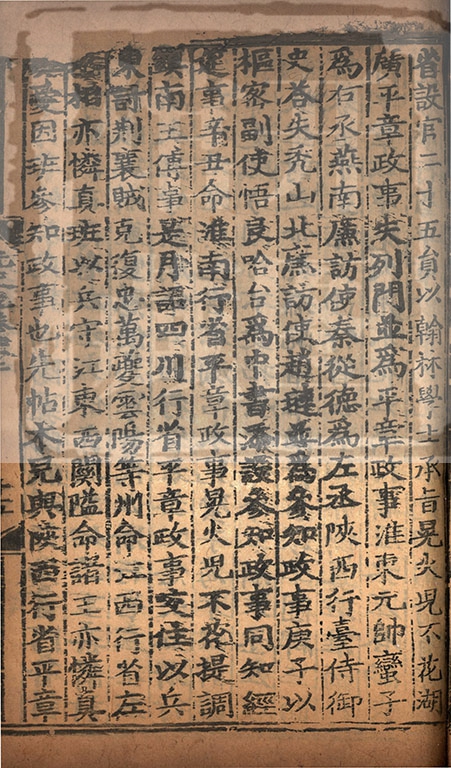 省設官二十五員以翰林學士承旨晃火兒不花湖
廣平章政事失列門並為平章政事淮東元帥蠻子
為右丞燕南廉訪使秦從德為左丞陜西行臺侍御
史荅失禿山北廉訪使趙璉並為參知政事庚子以
樞密副使悟良哈台為中書添設參知政事同知經
筵事辛丑命淮南行省平章政事晃火兒不花提調
鎮南王傅事是月詔四川行省平章政事住以兵
東討荆襄賊克復忠萬夔雲陽等州命江西行省左
丞相亦憐真班以兵守江東西關隘命諸王亦憐真
愛因班參知政事也先帖木兒與陜西行省平章